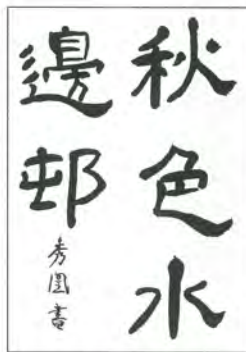 秋色水
邊邨
秀園書